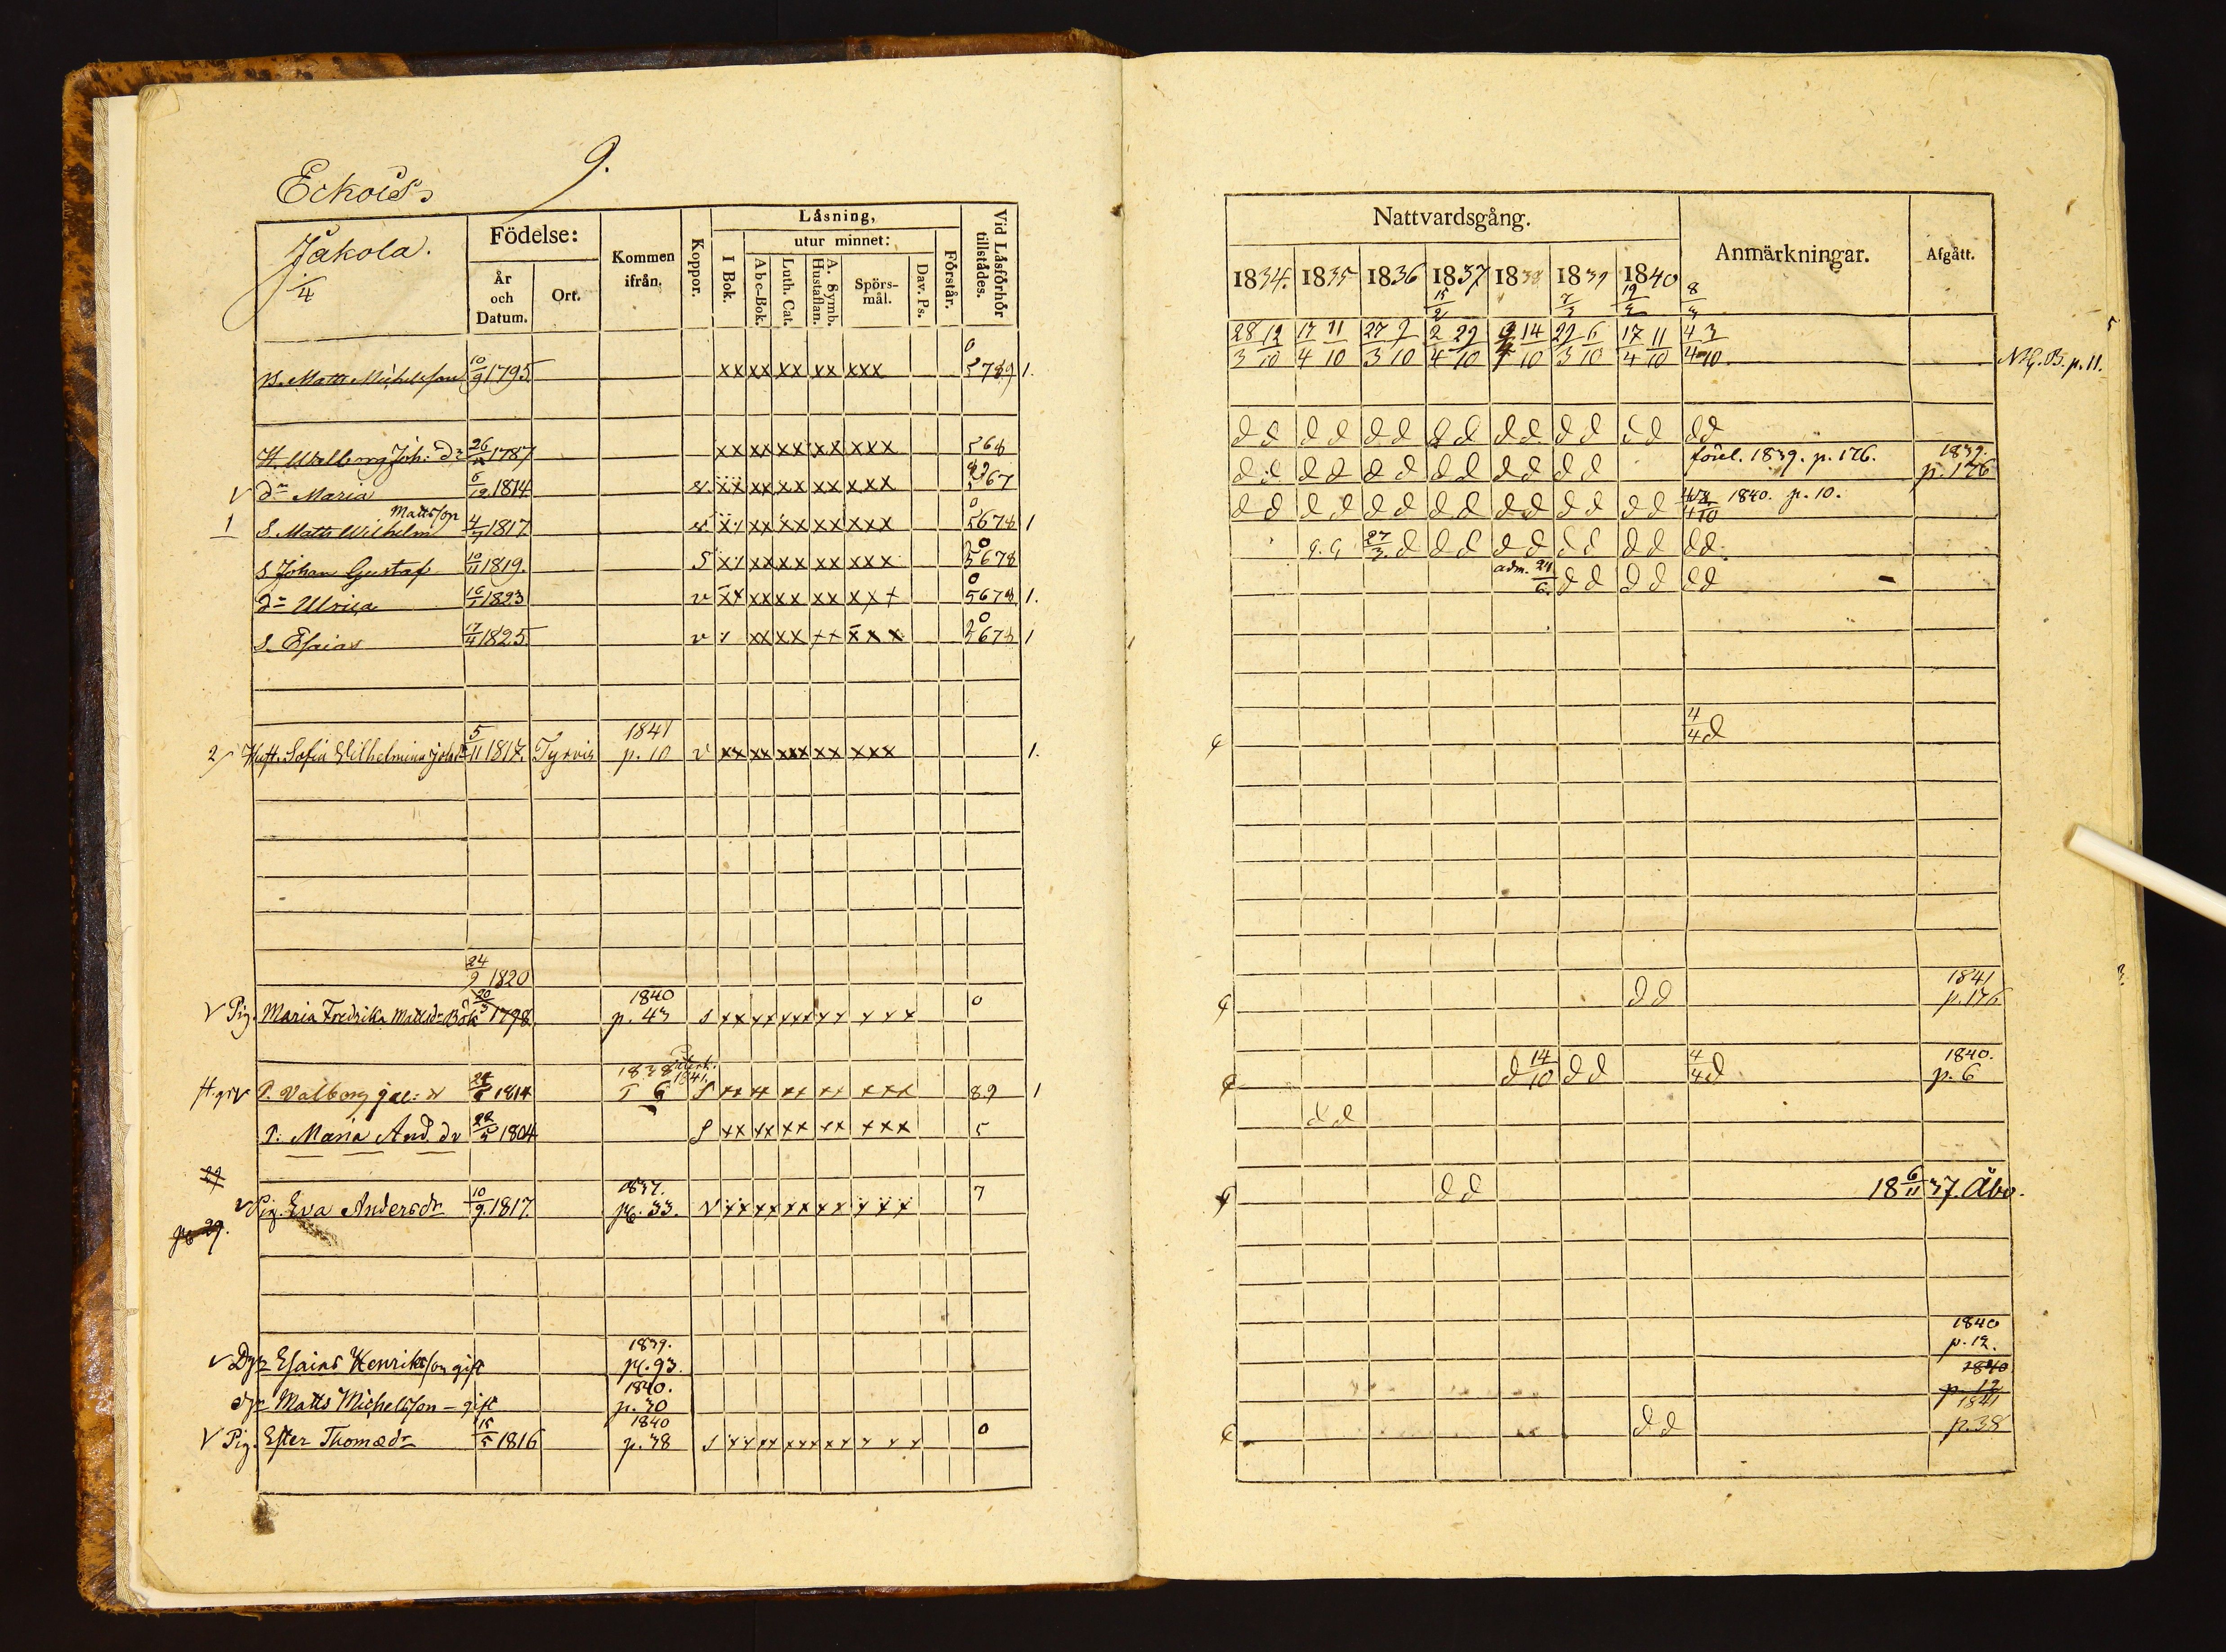 9.
Jakola.
1/4
Födelse:
År och Datum.
Ort.
Kommen ifrån.
Koppor.
Låsning,
utur minnet:
I Bok.
Abc-Bok.
Luth. Cat.
A. Symb. Hustaflan.
Spörsmål.
Dav. Ps.
Förstår.
Vid Låsförhör tillstådes.
B. Matts Michelsson 10/9 1795 xx xx xx xx xxx 0 5789 1.
H. Walborg Joh: dr 1787 xx xx xx xx xxx 568
v dr Maria 6/12 1814 xx xx xx xx xxx 267
1 S. Matts Wilhelm Mattsson 4/7 1817 xx xx xx xxx 0 5678 1
S Johan Gustaf 10/11 1819. xx xx xx xxx 0 5678
dr Ulrica 16/1 1823 v xx xx xx xx xxx 0 5678 1.
S. Esaias 17/4 1825 v xx xx xx xxx 0 2678 1
2/ Hust. Sofia Wilhelmina Johdr 5/11 1817. Tyrvis 1841 p. 10 v xx xx xxx xx xxx 1.
24/9 1820
v Pig. Maria Fredrika Mattsdr Bök 20/3 1798. 1840 p. 43 s xx xx xxx xx xxx 0
P. Valborg Jac: dr 1814 1838 1841 6 S xx xx xx xx xxx 89 1
P. Maria And. dr 1804 S xx xx xx xx xxx 5
v Pig. Eva Andersdr 10/9 1817 1837. pg. 33. v xx xx xx xx xxx 7
pg 29.
v Dgr Esaias Henriksson gift 1839. pg. 93.
dgr Matts Michelsson - gift 1840. p. 30
v Pig. Ester Thomædr 15/5 1816 1840 p. 38 s xx xx xxx xx xxx 0
Nattvardsgång.
Anmärkningar.
Afgått.
1834. 1835 1836 1837 1838 1839 1840
15/2 7/3 19/2 8/3
28/3 12/10 17/4 11/10 27/3 9/10 2/4 29/10 14/10 29/3 6/10 17/4 11/10 4/4 3/10 N.B. p. 11.
d d d d d d d d d d d d d d dd
d d d d d d d d d d d d förel. 1839. p. 176. 1839. p. 176
d d d d d d d d d d d d d d 1840. p. 10.
27/3. d d d d d d d d d dd
adm. 24/6. d d d d dd
4/4 d
d d 1841 p. 176
d 14/10 d d 4/4 d 1840. p. 6
d d
d d 18 6/11 37. Åbo.
1840 p. 12.
1840 p. 12
d d 1841 p. 38